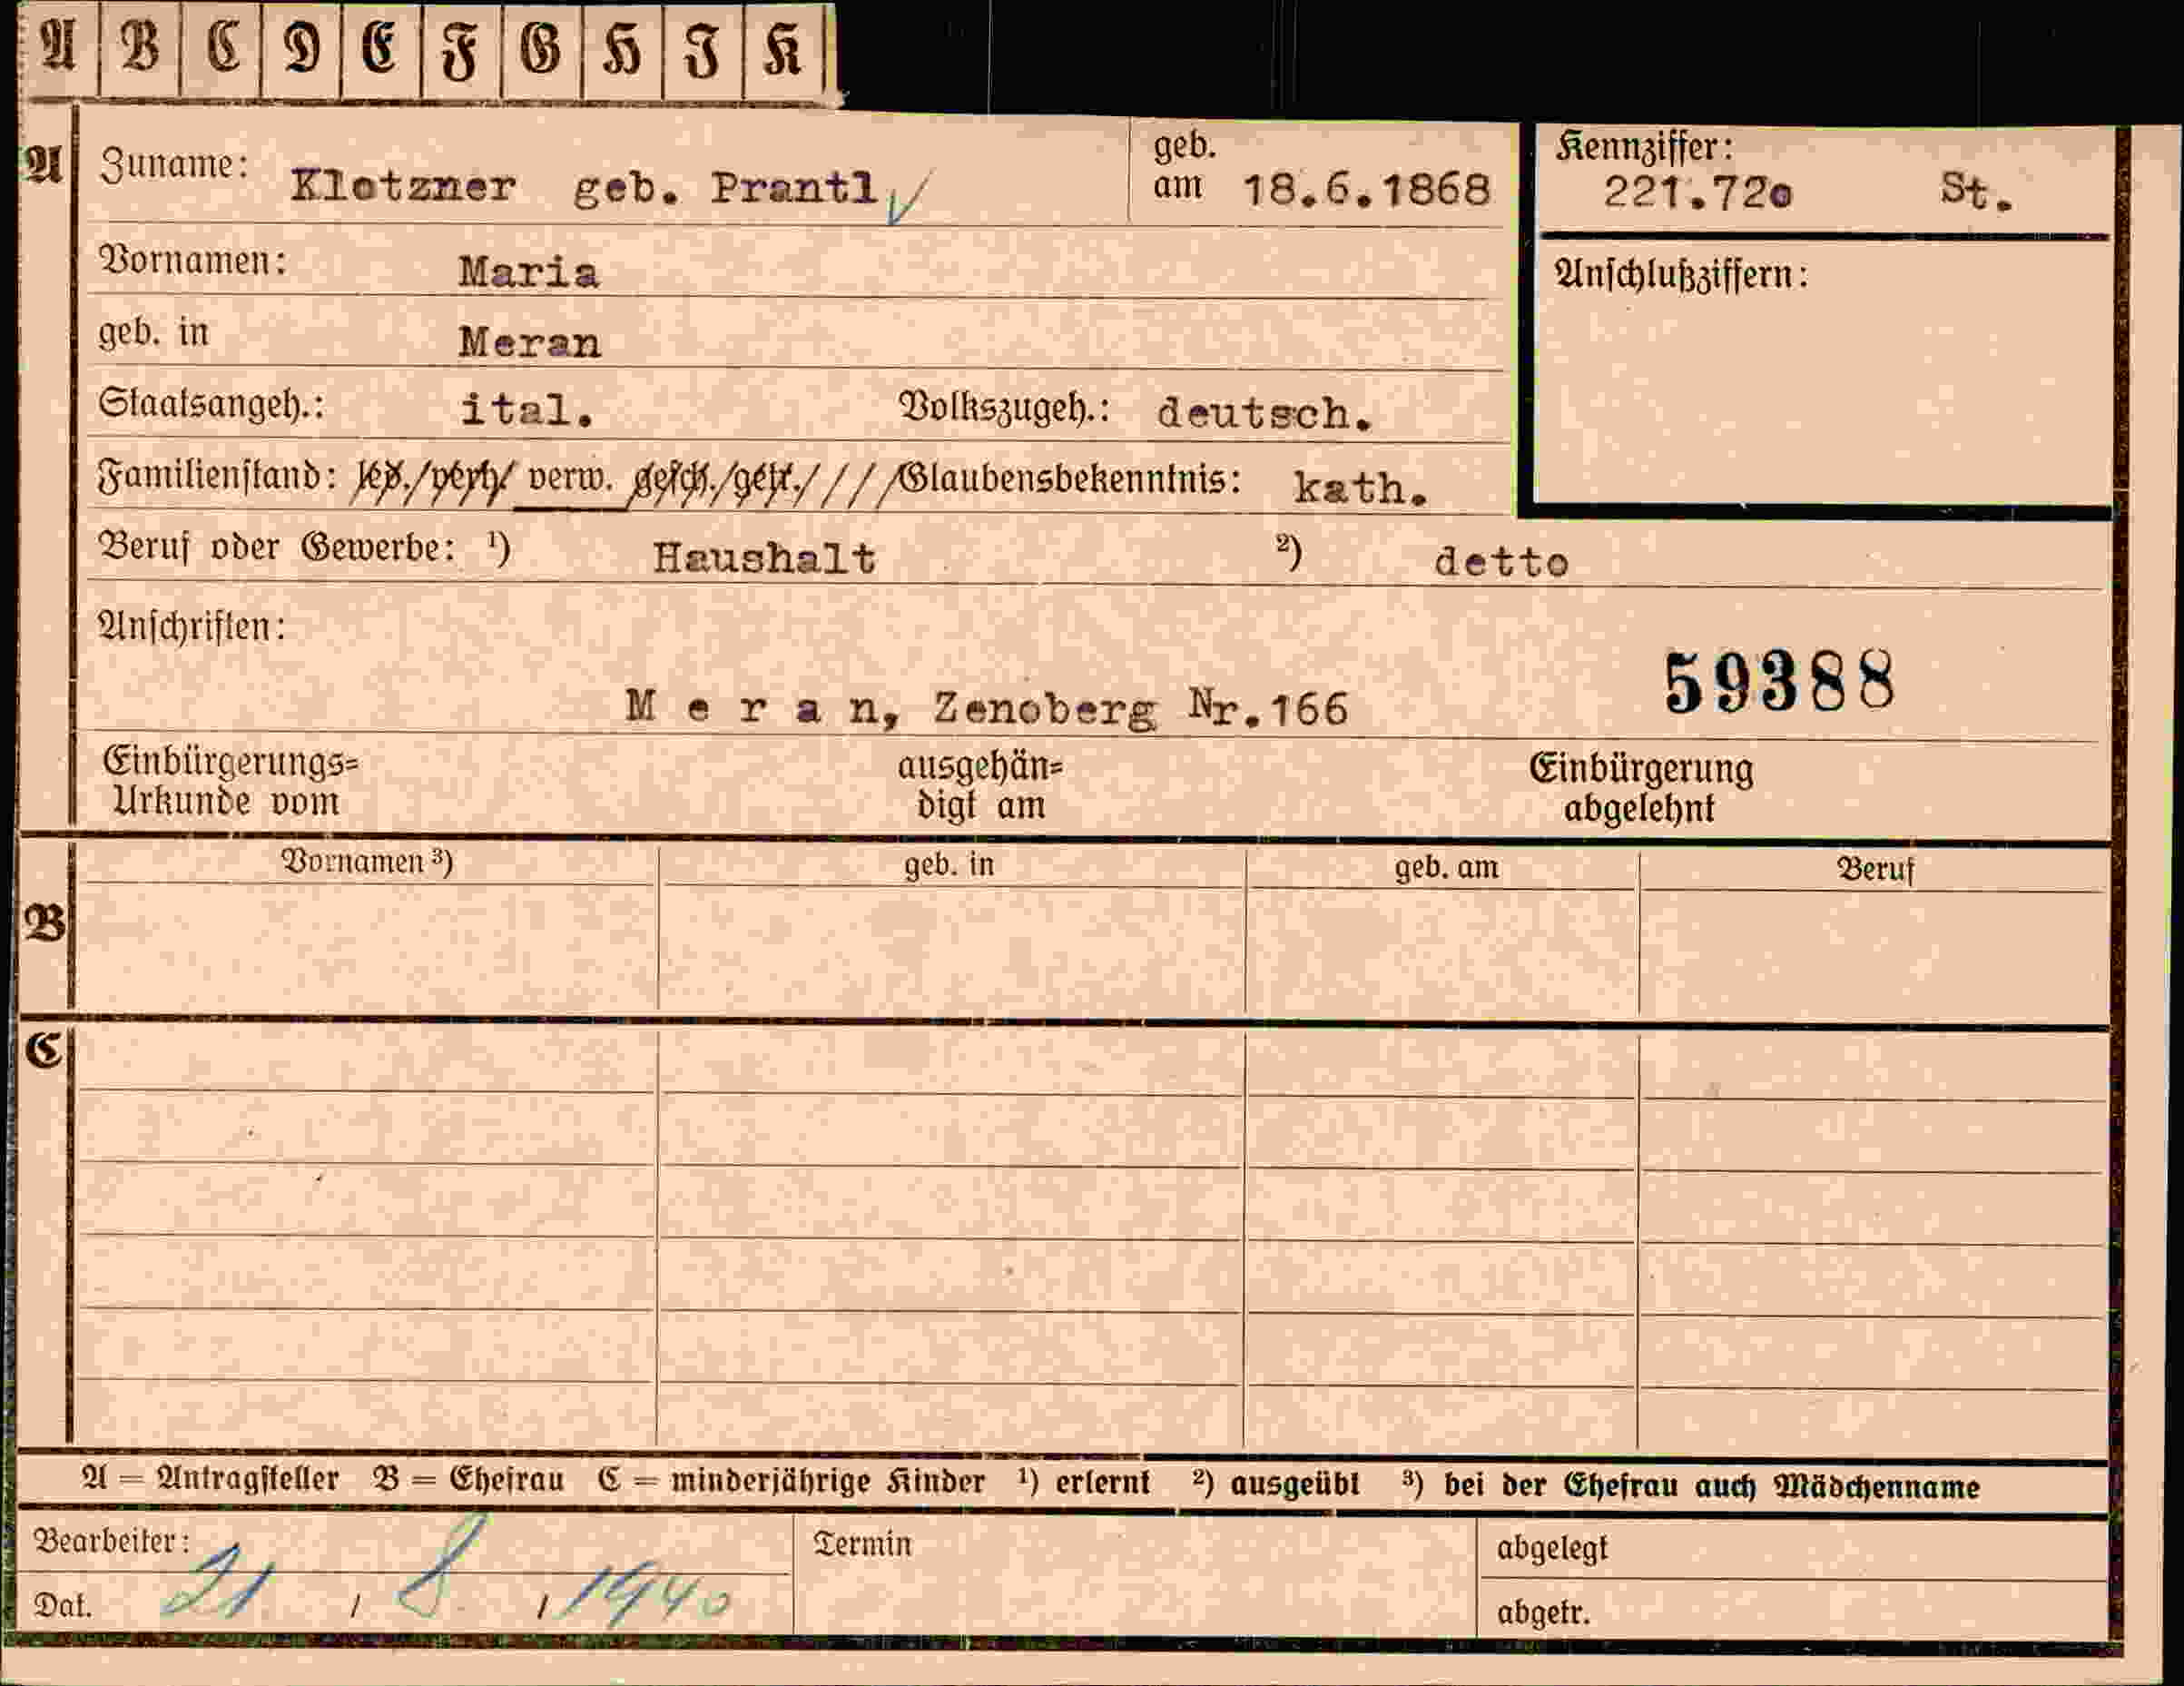 A B C D E F G H I K
A Zuname: Klotzner geb. Prantl geb. am 18.6.1868 Kennziffer: 221.720 St.
Vornamen: Maria Anschlußziffern:
geb. in Meran
Staatsangeh.: ital. Volkszugeh.: deutsch.
Familienstand: led./verh/ verw. gesch./getr./ / / /Glaubensbekenntnis: kath.
Beruf oder Gewerbe: ¹) Haushalt ²) detto
Anschriften:
59388
M e r a n, Zenoberg Nr.166
Einbürgerungs= Urkunde vom ausgehän= digt am Einbürgerung abgelehnt
Vornamen ³) geb. in geb. am Beruf
B
C
A = Antragsteller B = Ehefrau C = minderjährige Kinder ¹) erlernt ²) ausgeübt ³) bei der Ehefrau auch Mädchenname
Bearbeiter: Termin abgelegt
Dat. 21 / 8 / 1940 abgetr.